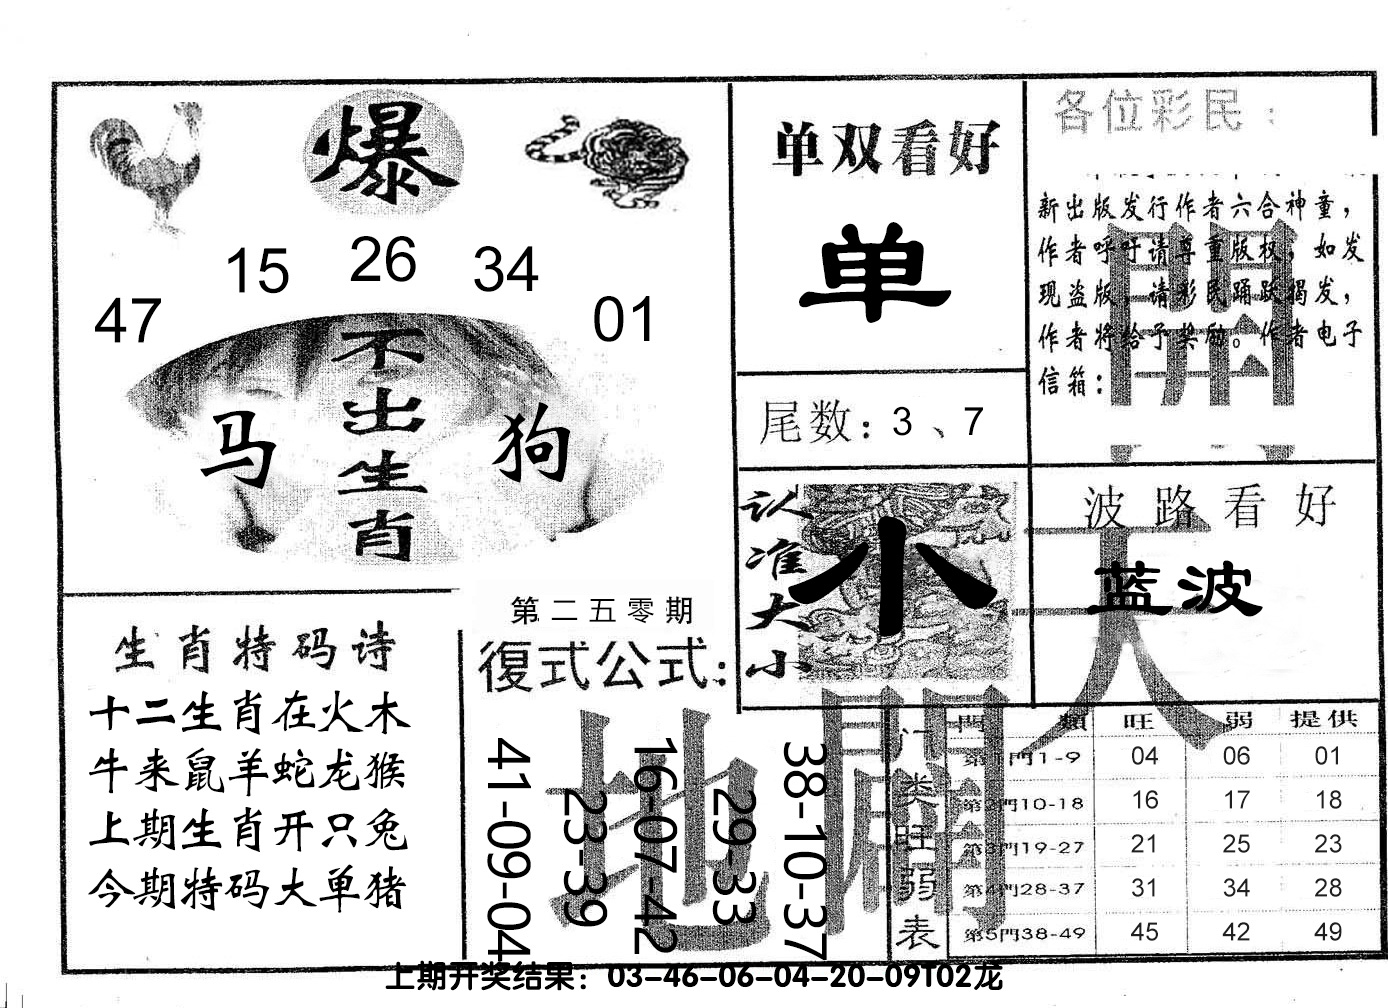 爆
47
15
26
34
01
不出生肖
马
狗
单双看好
单
尾数：3、7
各位彩民：
新出版发行作者六合神童，
作者呼吁请尊重版权，如发
现盗版，请彩民踊跃揭发，
作者将给予奖励。作者电子
信箱：
開
认准大小
小
波路看好
蓝波
天
生肖特码诗
十二生肖在火木
牛来鼠羊蛇龙猴
上期生肖开只兔
今期特码大单猪
第二五零期
復式公式：
41-09-04
23-39
16-07-42
29-33
38-10-37
地
门类旺弱表
門類 旺 弱 提供
第1門1-9 04 06 01
第2門10-18 16 17 18
第3門19-27 21 25 23
第4門28-37 31 34 28
第5門38-49 45 42 49
上期开奖结果：03-46-06-04-20-09T02龙